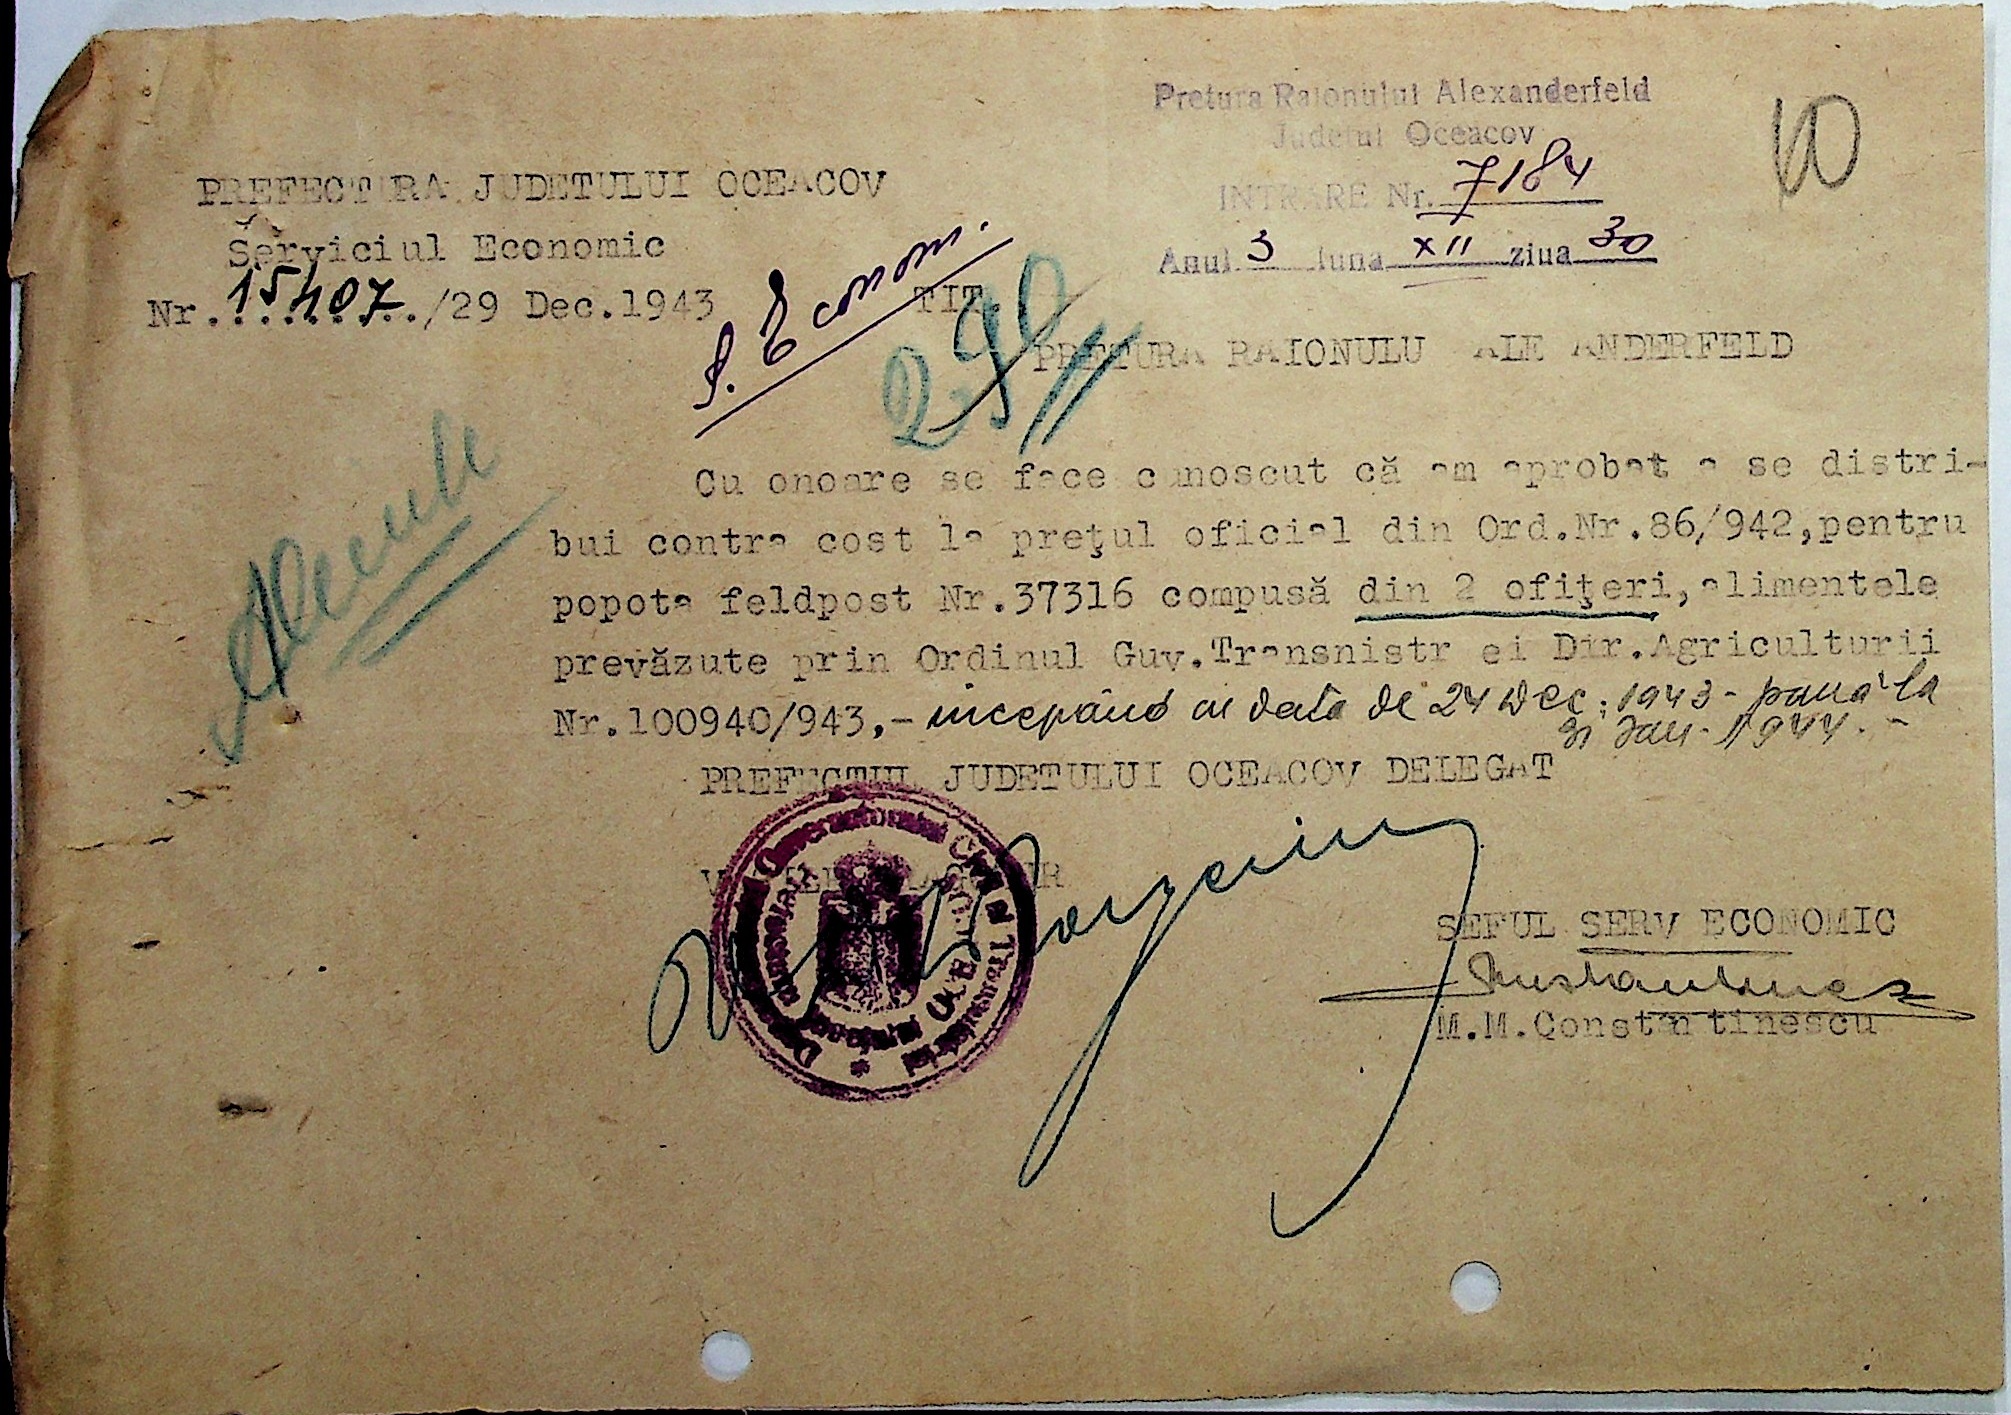 Pretura Raionului Alexanderfeld
Judetul Oceacov
INTRARE Nr. 7184
Anul 3 luna XII ziua 30
10
PREFECTURA JUDETULUI OCEACOV
Serviciul Economic
Nr. 15407./29 Dec.1943
S. Econom.
TIT.
PRETURA RAIONULU ALE ANDERFELD
Cu onoare se face cunoscut că am aprobat a se distri-
bui contra cost la preţul oficial din Ord.Nr.86/942,pentru
popota feldpost Nr.37316 compusă din 2 ofiţeri,alimentele
prevăzute prin Ordinul Guv.Transnistr ei Dir.Agriculturii
Nr.100940/943,- începând cu data de 24 Dec. 1943 - până la
31 Jan. 1944. -
PREFECTUL JUDETULUI OCEACOV DELEGAT
SEFUL SERV ECONOMIC
M.M.Constantinescu